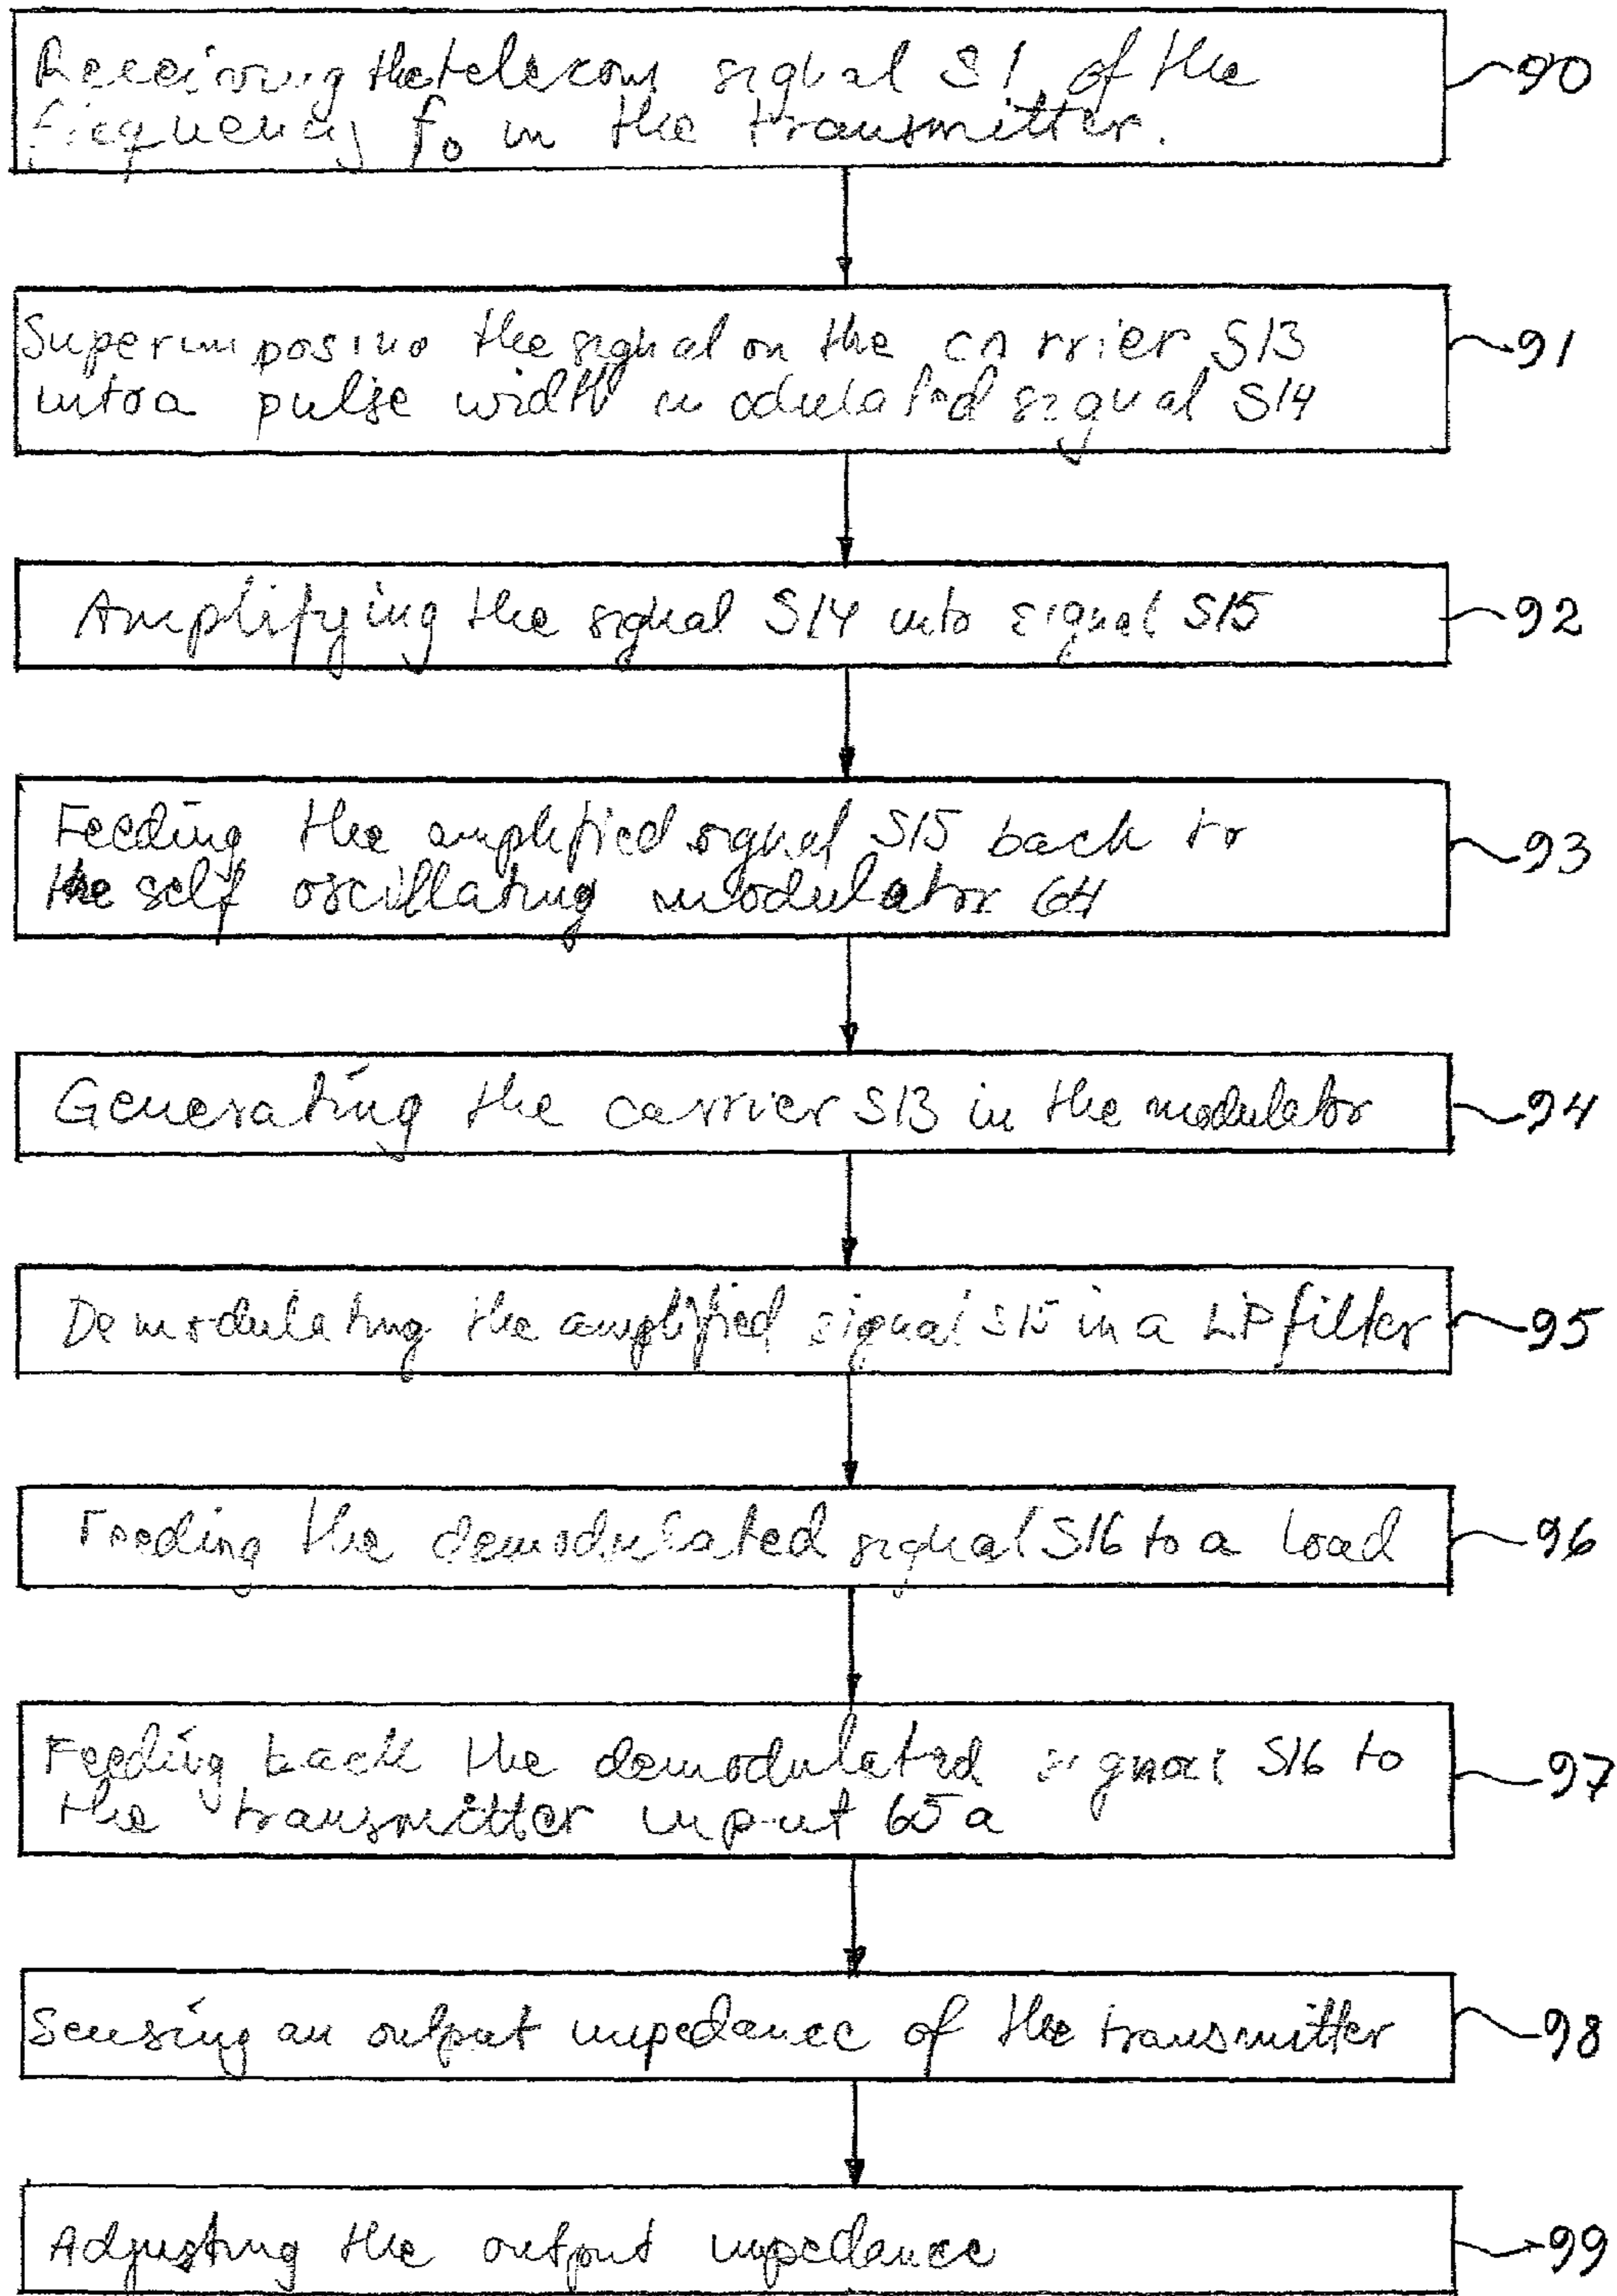 Receiving the telecom signal S1 of the 90
frequency f0 in the transmitter.
Superimposing the signal on the carrier S13 91
into a pulse width modulated signal S14
Amplifying the signal S14 into signal S15 92
Feeding the amplified signal S15 back to 93
the self oscillating modulator 64
Generating the carrier S13 in the modulator 94
Demodulating the amplified signal S15 in a LP filter 95
Feeding the demodulated signal S16 to a load 96
Feeding back the demodulated signal S16 to 97
the transmitter input 65a
Sensing an output impedance of the transmitter 98
Adjusting the output impedance 99